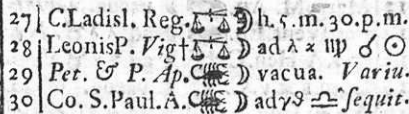 27 C.Ladisl. Reg. ♎ ☽ h. 5. m. 30. p.m.
28 LeonisP. Vig† ♎ ☽ ad λ ϰ ♍ ☌ ☉
29 Pet. & P. Ap. ☽ vacua. Variu.
30 Co. S.Paul.A. ☽ adγϑ ♎ ſequit.